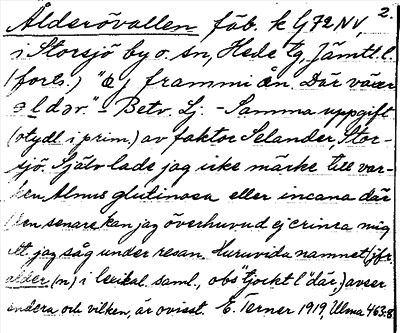 2.
Ålderövallen fäb. k G 72 NV,
i Storsjö by o. sn, Hede tg, Jämtl. l.
(forts.) "ej frammi ån. Där växer
aldər." - Betv. Lj. - Samma uppgift
(otydl i prim.) av faktor Selander, Stor-
sjö. Själv lade jag icke märke till var-
ken Almus glutinosa eller incana där
(den senare kan jag överhuvud ej erinra mig
att jag såg under resan. Huruvida namnet (jfr.
alder (n) i lexikal. saml., obs "tjockt l" där,) avser
endera och vilken, är ovisst. E. Terner 1919 Ulma 463:8